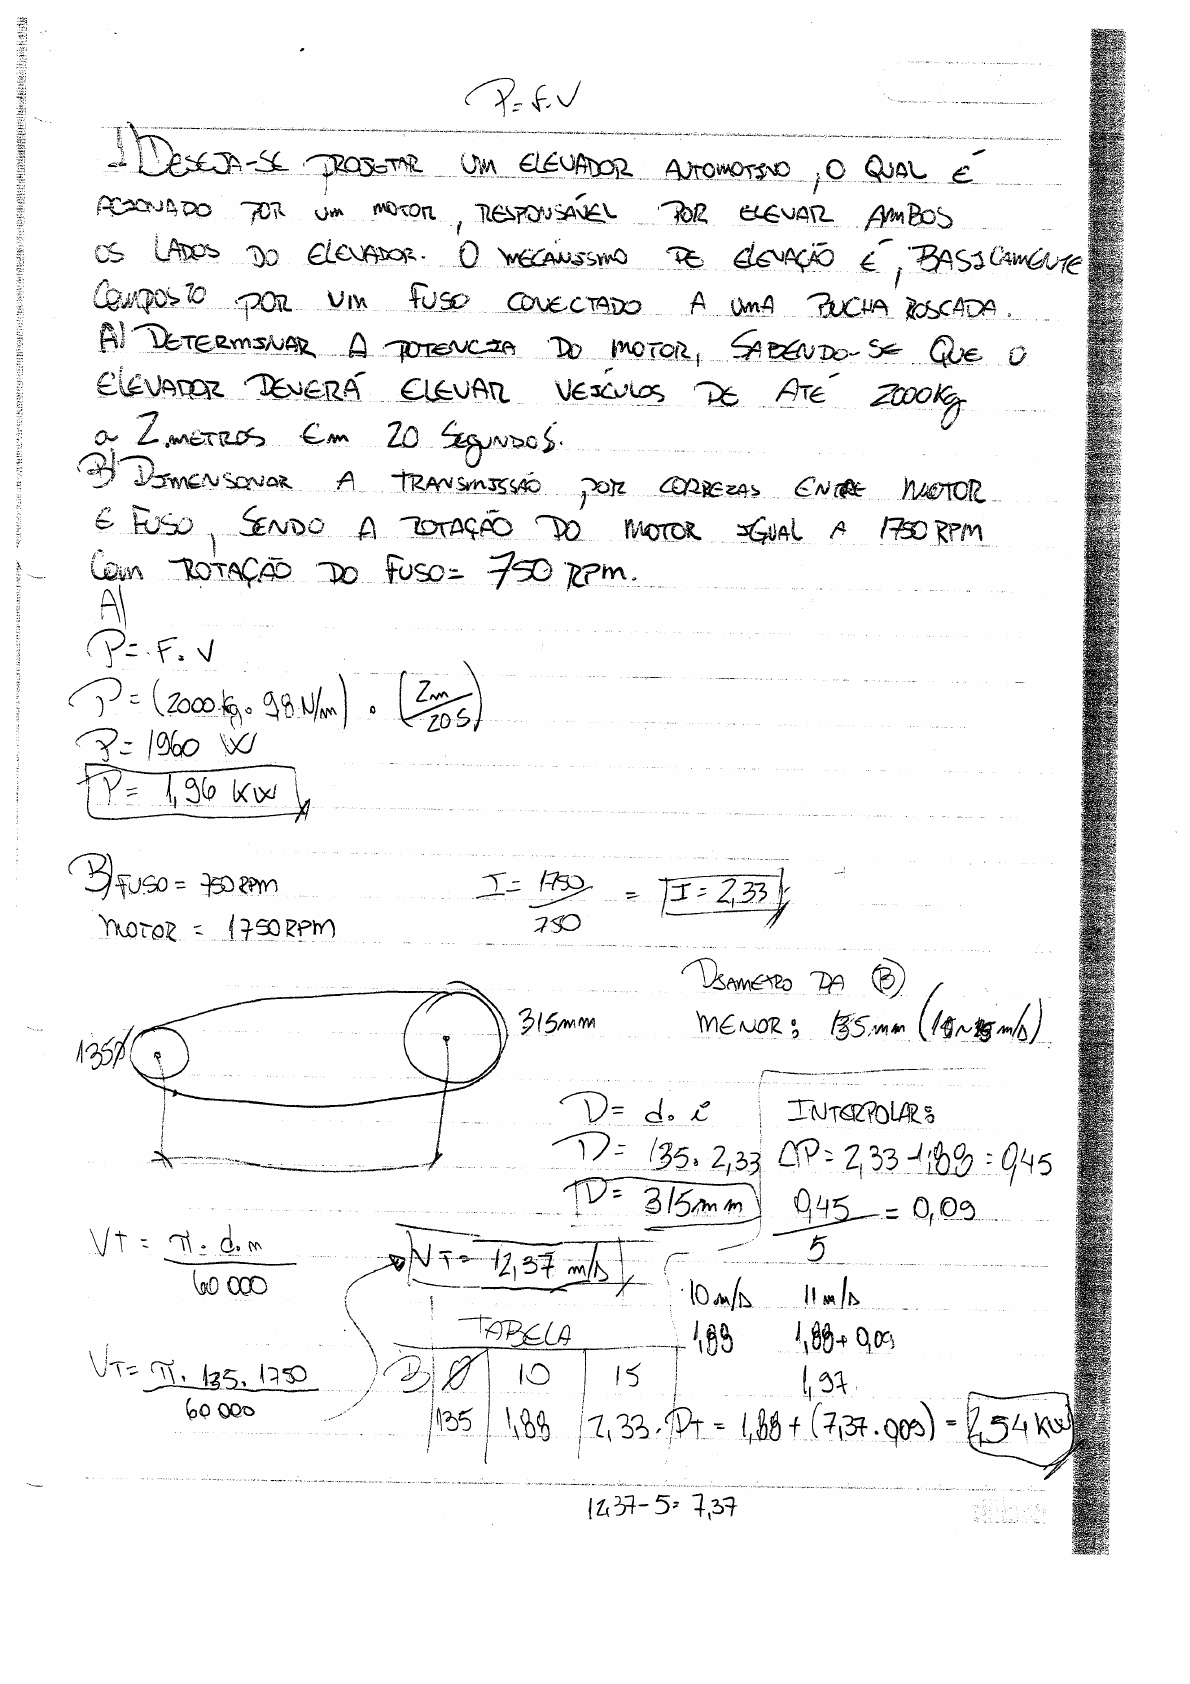 P = F.V
1) DESEJA-SE PROJETAR UM ELEVADOR AUTOMOTIVO, O QUAL É
ACIONADO POR UM MOTOR, RESPONSÁVEL POR ELEVAR AMBOS
OS LADOS DO ELEVADOR. O MECANISMO DE ELEVAÇÃO É, BASICAMENTE
COMPOSTO POR UM FUSO CONECTADO A UMA BUCHA ROSCADA.
A) DETERMINAR A POTENCIA DO MOTOR, SABENDO-SE QUE O
ELEVADOR DEVERÁ ELEVAR VEÍCULOS DE ATÉ 2000kg
a 2 METROS EM 20 SEGUNDOS.
B) DIMENSONAR A TRANSMISSÃO POR CORREIAS ENTRE MOTOR
E FUSO, SENDO A ROTAÇÃO DO MOTOR IGUAL A 1750 RPM
COM ROTAÇÃO DO FUSO = 750 RPM.
A)
P = F. V
P = (2000 kg. 9,8 N/m) . (2m/20s)
P = 1960 W
P = 1,96 KW
B) FUSO = 750 RPM I = 1750/750 = I = 2,33
MOTOR = 1750 RPM
DIAMETRO DA (B)
MENOR: 135 mm
135ø 315mm
D = d. i INTERPOLAR:
D = 135. 2,33 ΔP = 2,33 - 1,88 = 0,45
D = 315mm 0,45/5 = 0,09
VT = π. d. n/60 000 VT = 12,37 m/s
10 m/s 11 m/s
TABELA 1,88 1,88 + 0,09
VT = π. 135. 1750/60 000 B ø 10 15 1,97
135 1,88 2,33. PT = 1,88 + (7,37 . 0,09) = 2,54 KW
12,37 - 5 = 7,37